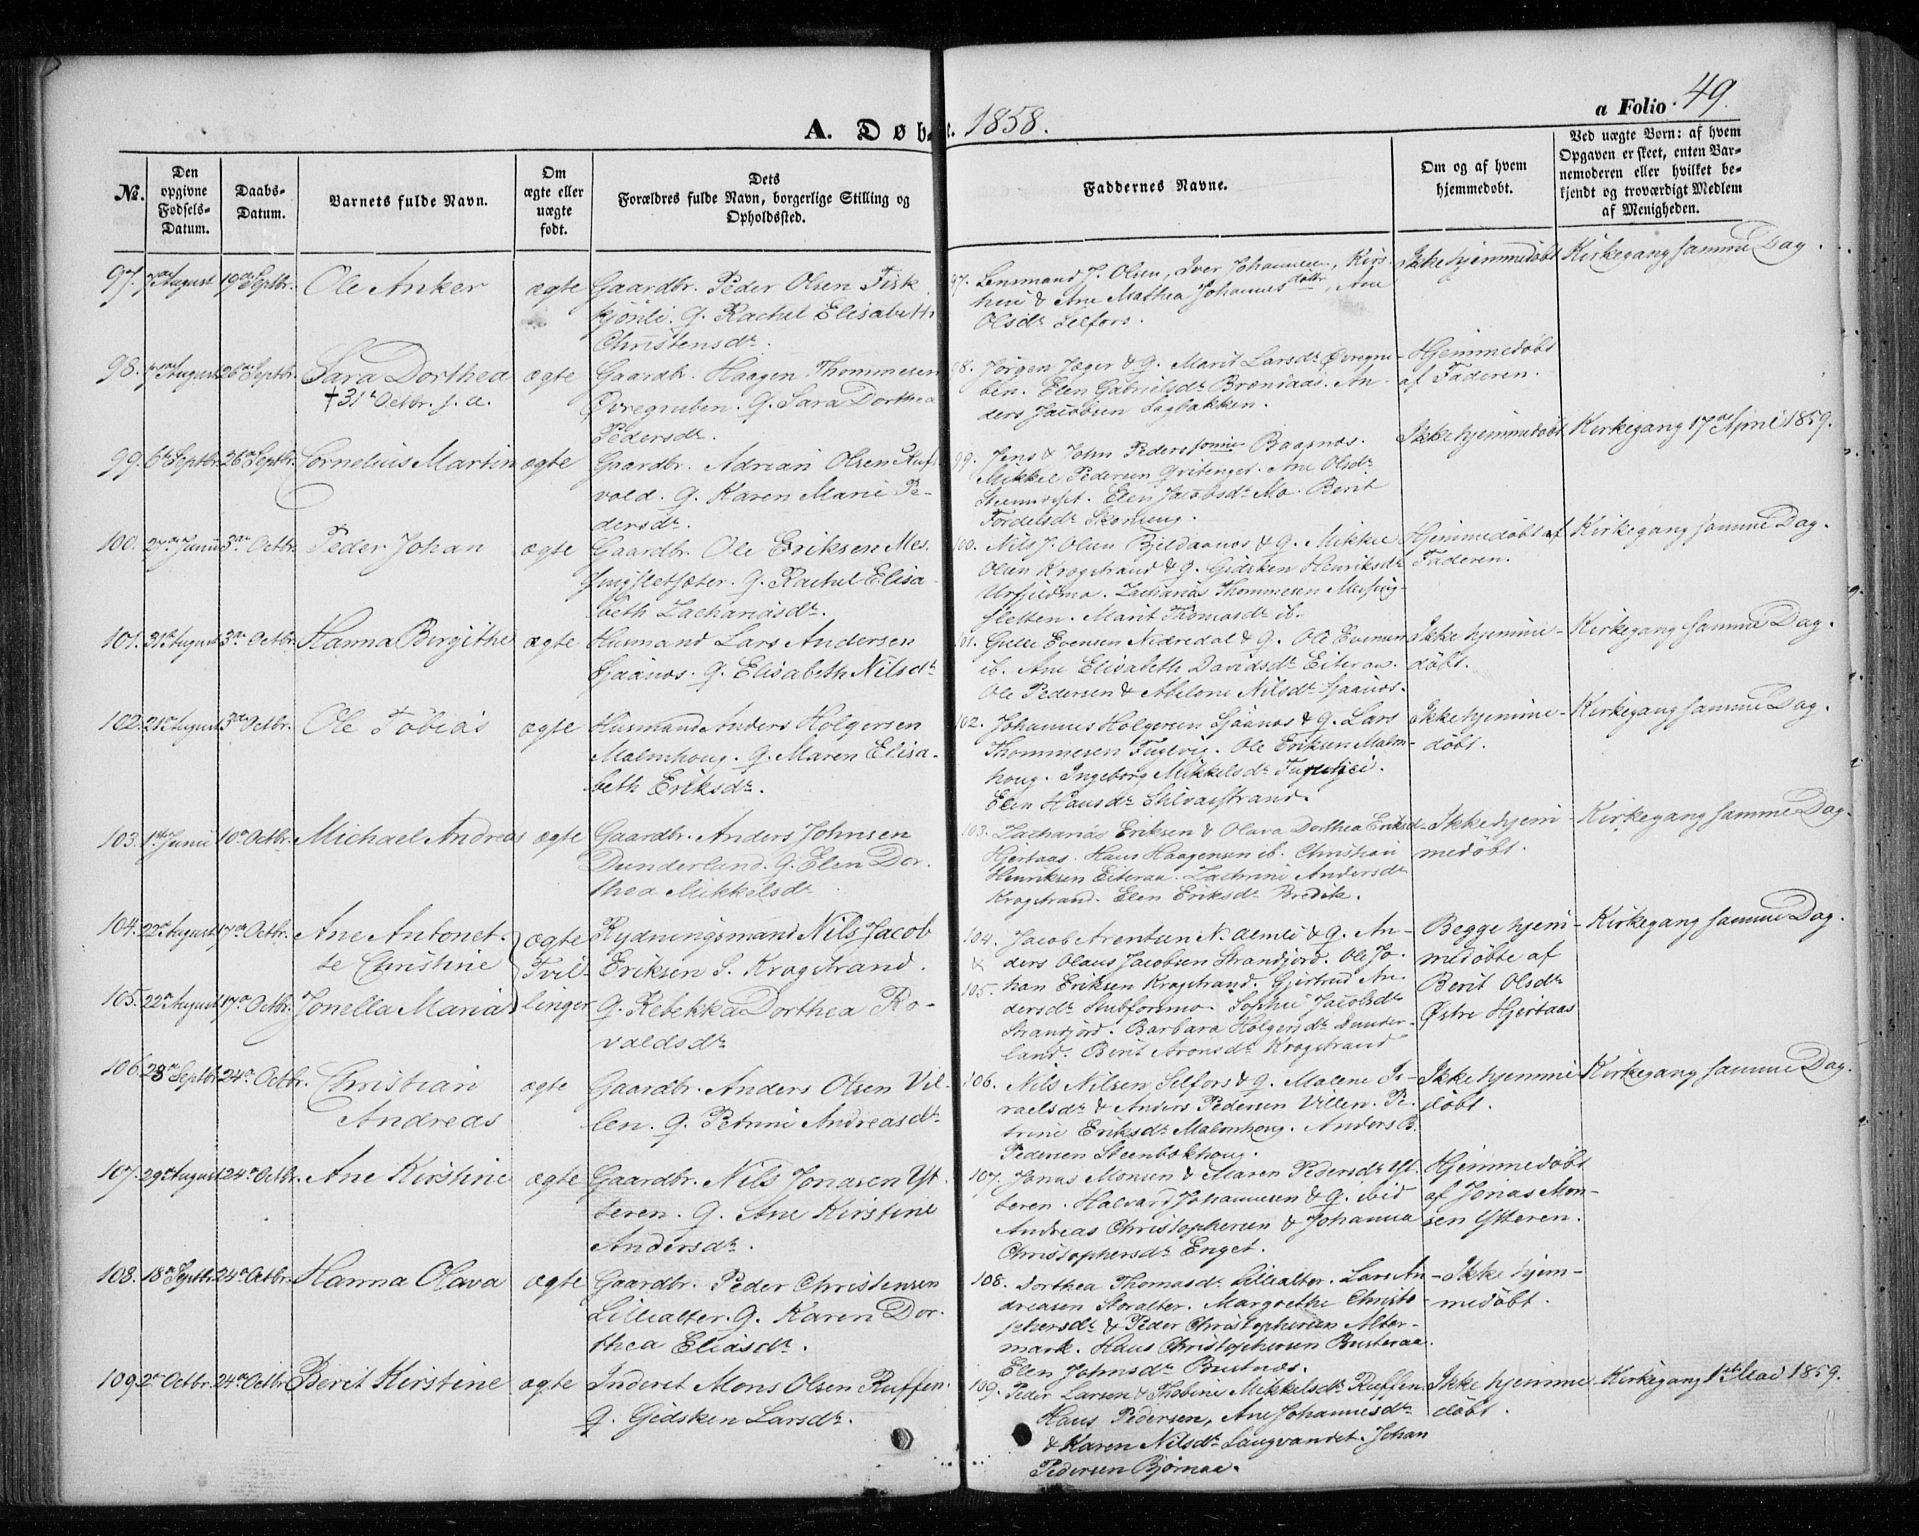 A. Døbte. 1858.
a Folio. 49.
No.
Den opgivne Fødsels-Datum.
Daabs-Datum.
Barnets fulde Navn.
Om ægte eller uægte født.
Dets Forældres fulde Navn, borgerlige Stilling og Opholdssted.
Faddernes Navne.
Om og af hvem hjemmedøbt.
Ved uægte Børn: af hvem Opgaven er skeet, enten Barnemoderen eller hvilket bekjendt og troværdigt Medlem af Menigheden.
97. 7de August 19de Septbr. Ole Anker ægte Gaardbr. Peder Olsen Fisk
kjønli. G. Rachel Elisabeth
Christensdr.
97. Lensmand J. Olsen, Iver Johannesen, Kirs-
tine & Ane Mathea Johannesdøttr, Ane
Olsdr Selfors.
Ikke hjemmedøbt
Kirkegang samme Dag.
98. August 26de Septbr. Sara Dorthea ægte Gaardbr. Haagen Thommesen
† 31te Octbr. s. a. Øvregruben. G. Sara Dorthea
Pedersdr.
98. Jørgen Jæger & G. Marit Larsdr Øvregru-
ben. Elen Gabrielsdr Brendaas. An-
ders Jacobsen Lagbakken.
Hjemmedøbt
af Faderen.
99. 6te Septbr. 26de Septbr. Cornelius Martin ægte Gaardbr. Adrian Olsen Ruf-
vold. G. Karen Marie Pe-
dersdr.
99. Jens & John Pederssønner Baagnæs.
Mikkel Pedersen Qvitenget. Ane Olsdr
Elen Jacobsdr Mo. Berit
Fordelsdr Skonseng.
Ikke hjemmedøbt
Kirkegang 17de April 1859.
100. 27de Juni 3die Octbr. Peder Johan ægte Gaardbr. Ole Eriksen Mes-
singsletsæter. G. Rachel Elisa-
beth Zachariasdr.
100. Nils J. Olsen Bjeldaanæs & G. Mikkel
Olsen Krogstrand & G. Gidsken Henriksdr
Urfjeldmo. Zacharias Thommesen Messing-
sletten. Marit Thomasdr ib.
Hjemmedøbt af
Faderen.
Kirkegang samme Dag.
101. 31te August 3die Octbr. Hanna Bergithe ægte Husmand Lars Andersen
Sjaanæs. G. Elisabeth Nilsdr
101. Gulle Evensen Nedredal & G. Ole Evensen
ib. Ane Elisabeth Davidsdr Eiteraa.
Ole Pedersen & Abelone Nilsdr Sjaanæs.
Ikke hjemme-
døbt.
Kirkegang samme Dag.
102. 21de August 3die Octbr. Ole Tobias ægte Husmand Anders Holgersen
Malmhoug. G. Maren Elisa-
beth Eriksdr.
102. Johannes Holgersen Sjaanæs & G. Lars
Thommesen Fuglvig. Ole Eriksen Malm-
houg. Ingeborg Mikkelsdr
Elen Hansdr Stilvasstrand.
Ikke hjemme-
døbt.
Kirkegang samme Dag.
103. 1ste Juni 10de Octbr. Michael Andreas ægte Gaardbr. Anders Johnsen
Dunderland. G. Elen Dor-
thea Mikkelsdr
103. Zacharias Eriksen & Olava Dorthea Eriksdr
Hjertaas. Hans Haagensen ib. Christian
Henriksen Eiteraa. Zachrine Andersdr
Krogstrand. Elen Eriksdr Bredik.
Ikke hjem-
medøbt.
Kirkegang samme Dag.
104. 22de August 17de Octbr. Ane Antonet-
te Christine ægte Rydningsmand Nils Jacob
Tvil- Eriksen S. Krogstrand.
105. 22de August 17de Octbr. Jonella Maria linger G. Rebekka Dorthea Ro-
valdsdr
104. & 105. Jacob Arentsen N. Ølmli & G. An-
ders Olaus Jacobsen Strandjord. Ole Jo-
han Eriksen Krogstrand. Gjertrud An-
dersdr Stubforsmo. Sophie Jacobsdr
Strandjord. Barbara Holgersdr Dunder-
land. Berit Aronsdr Krogstrand
Begge hjem-
medøbte af
Berit Olsdr
Østre Hjertaas
Kirkegang samme Dag.
106. 28de Septbr. 24de Octbr. Christian
Andreas ægte Gaardbr. Anders Olsen Vil-
len. G. Petrine Andreasdr
106. Nils Nilsen Selfors & G. Malene Is-
raelsdr & Anders Pedersen Villen. Pe-
trine Eriksdr Malmhoug. Anders B.
Pedersen Steenbokhoug.
Ikke hjemme-
døbt.
Kirkegang samme Dag.
107. 29de August 24de Octbr. Ane Kirstine ægte Gaardbr. Nils Jonasen Yt-
teren. G. Ane Kirstine
Andersdr.
107. Jonas Monsen & Maren Pedersdr Yt-
teren. Halvard Johannesen & G. ibid
Andreas Christophersen & Johanna
Christophersdr Enget.
Hjemmedøbt
af Jonas Mon-
sen Ytteren.
108. 18de Septbr. 24de Octbr. Hanna Olava ægte Gaardbr. Peder Christensen
Lillealter. G. Karen Dor-
thea Eliasdr.
108. Dorthea Thomasdr Lillealter. Lars An-
dreasen Storalter. Margrethe Christo-
phersdr & Peder Christophersen Alter-
mark. Hans Christophersen Busteraa.
Elen Johnsdr Bustnæs.
Ikke hjem-
medøbt.
109. 2de Octbr. 24de Octbr. Berit Kirstine ægte Inderst Mons Olsen Ruffen
G. Gidsken Larsdr.
109. Peder Larsen & Thobine Mikkelsdr Ruffen
Hans Pedersen, Ane Johannesdr
& Karen Nilsdr Langvandet. Johan
Pedersen Bjørnaa.
Ikke hjemme-
døbt.
Kirkegang 1ste Mai 1859.